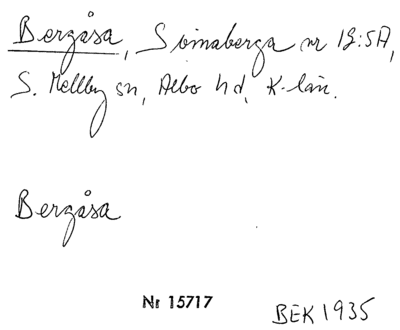 Bergåsa, Svinaberga nr 19:5A,
S. Mellby sn, Albo hd, K-län.
Bergåsa
Nr 15717
BEK 1935